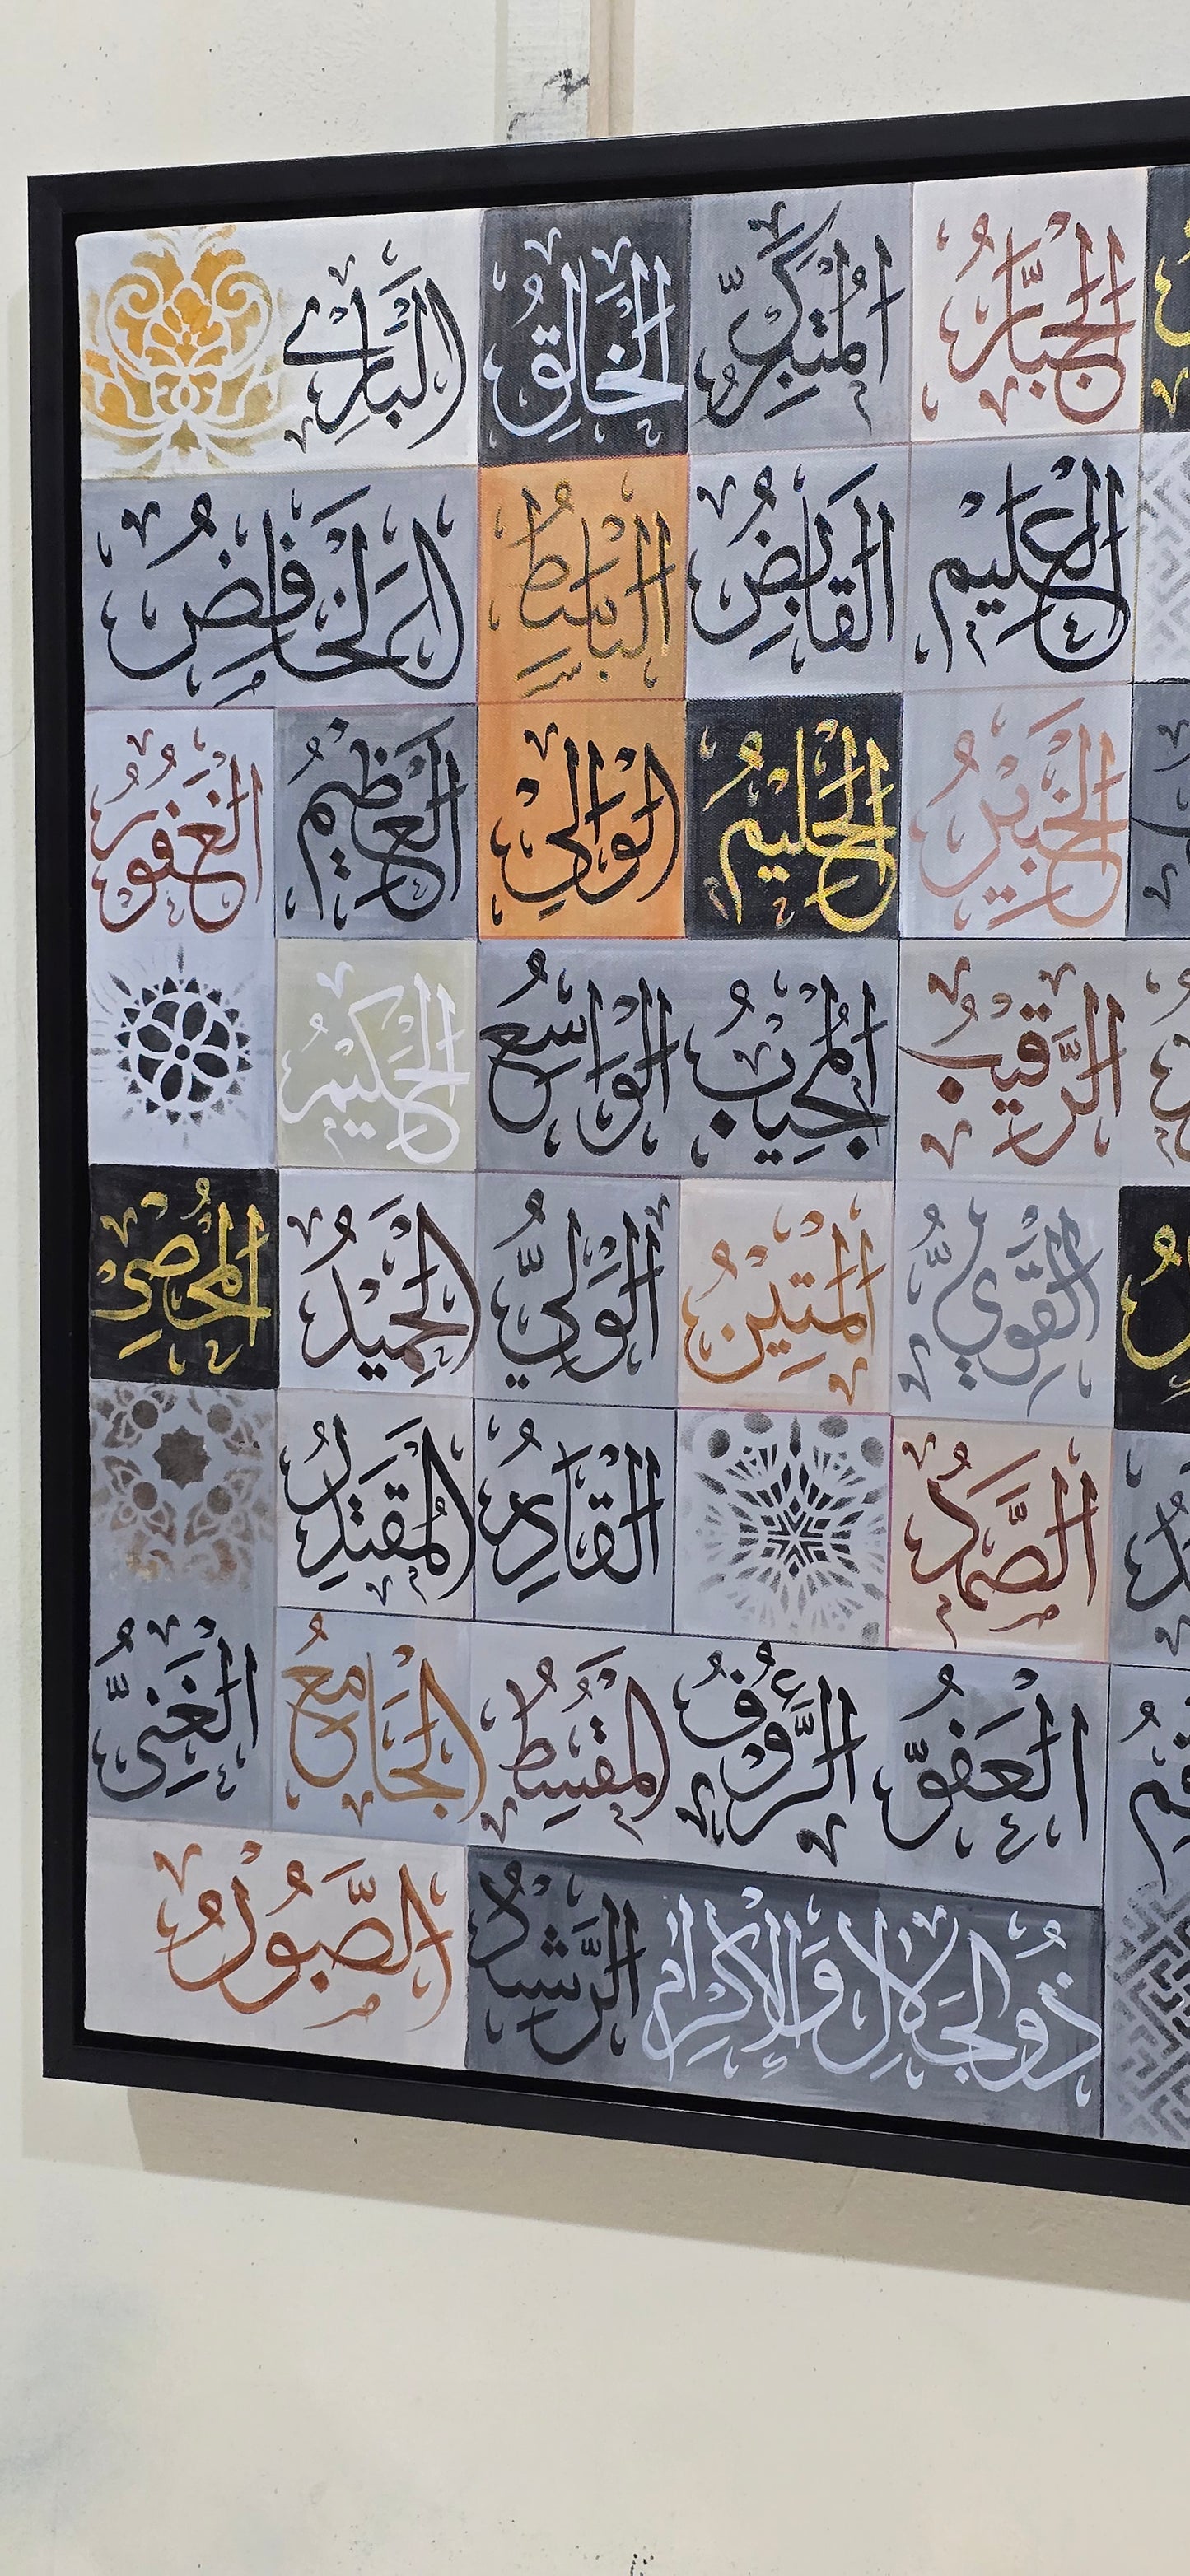 الجبَّار المتكبِّرُ الخَالِقُ البَارِئ
العليم القابِضُ البَاسِطُ الخَافِضُ
الخَبِيْرُ الحَلِيمُ الوَالِيْ العَظِيْمُ الغَفُورُ
الرَّقِيبُ المُجِيبُ الوَاسِعُ الحَكِيْمُ
القَوِيُّ المَتِيْنُ الوَلِيُّ الحَمِيْدُ المُحْصِيْ
الصَّمَدُ القَادِرُ المُقْتَدِرُ
العَفُوُّ الرَّءُوفُ المُقْسِطُ الجَامِعُ الغَنِيُّ
ذُو الجَلَالِ وَالإِكْرَام الصَّبُوْرُ